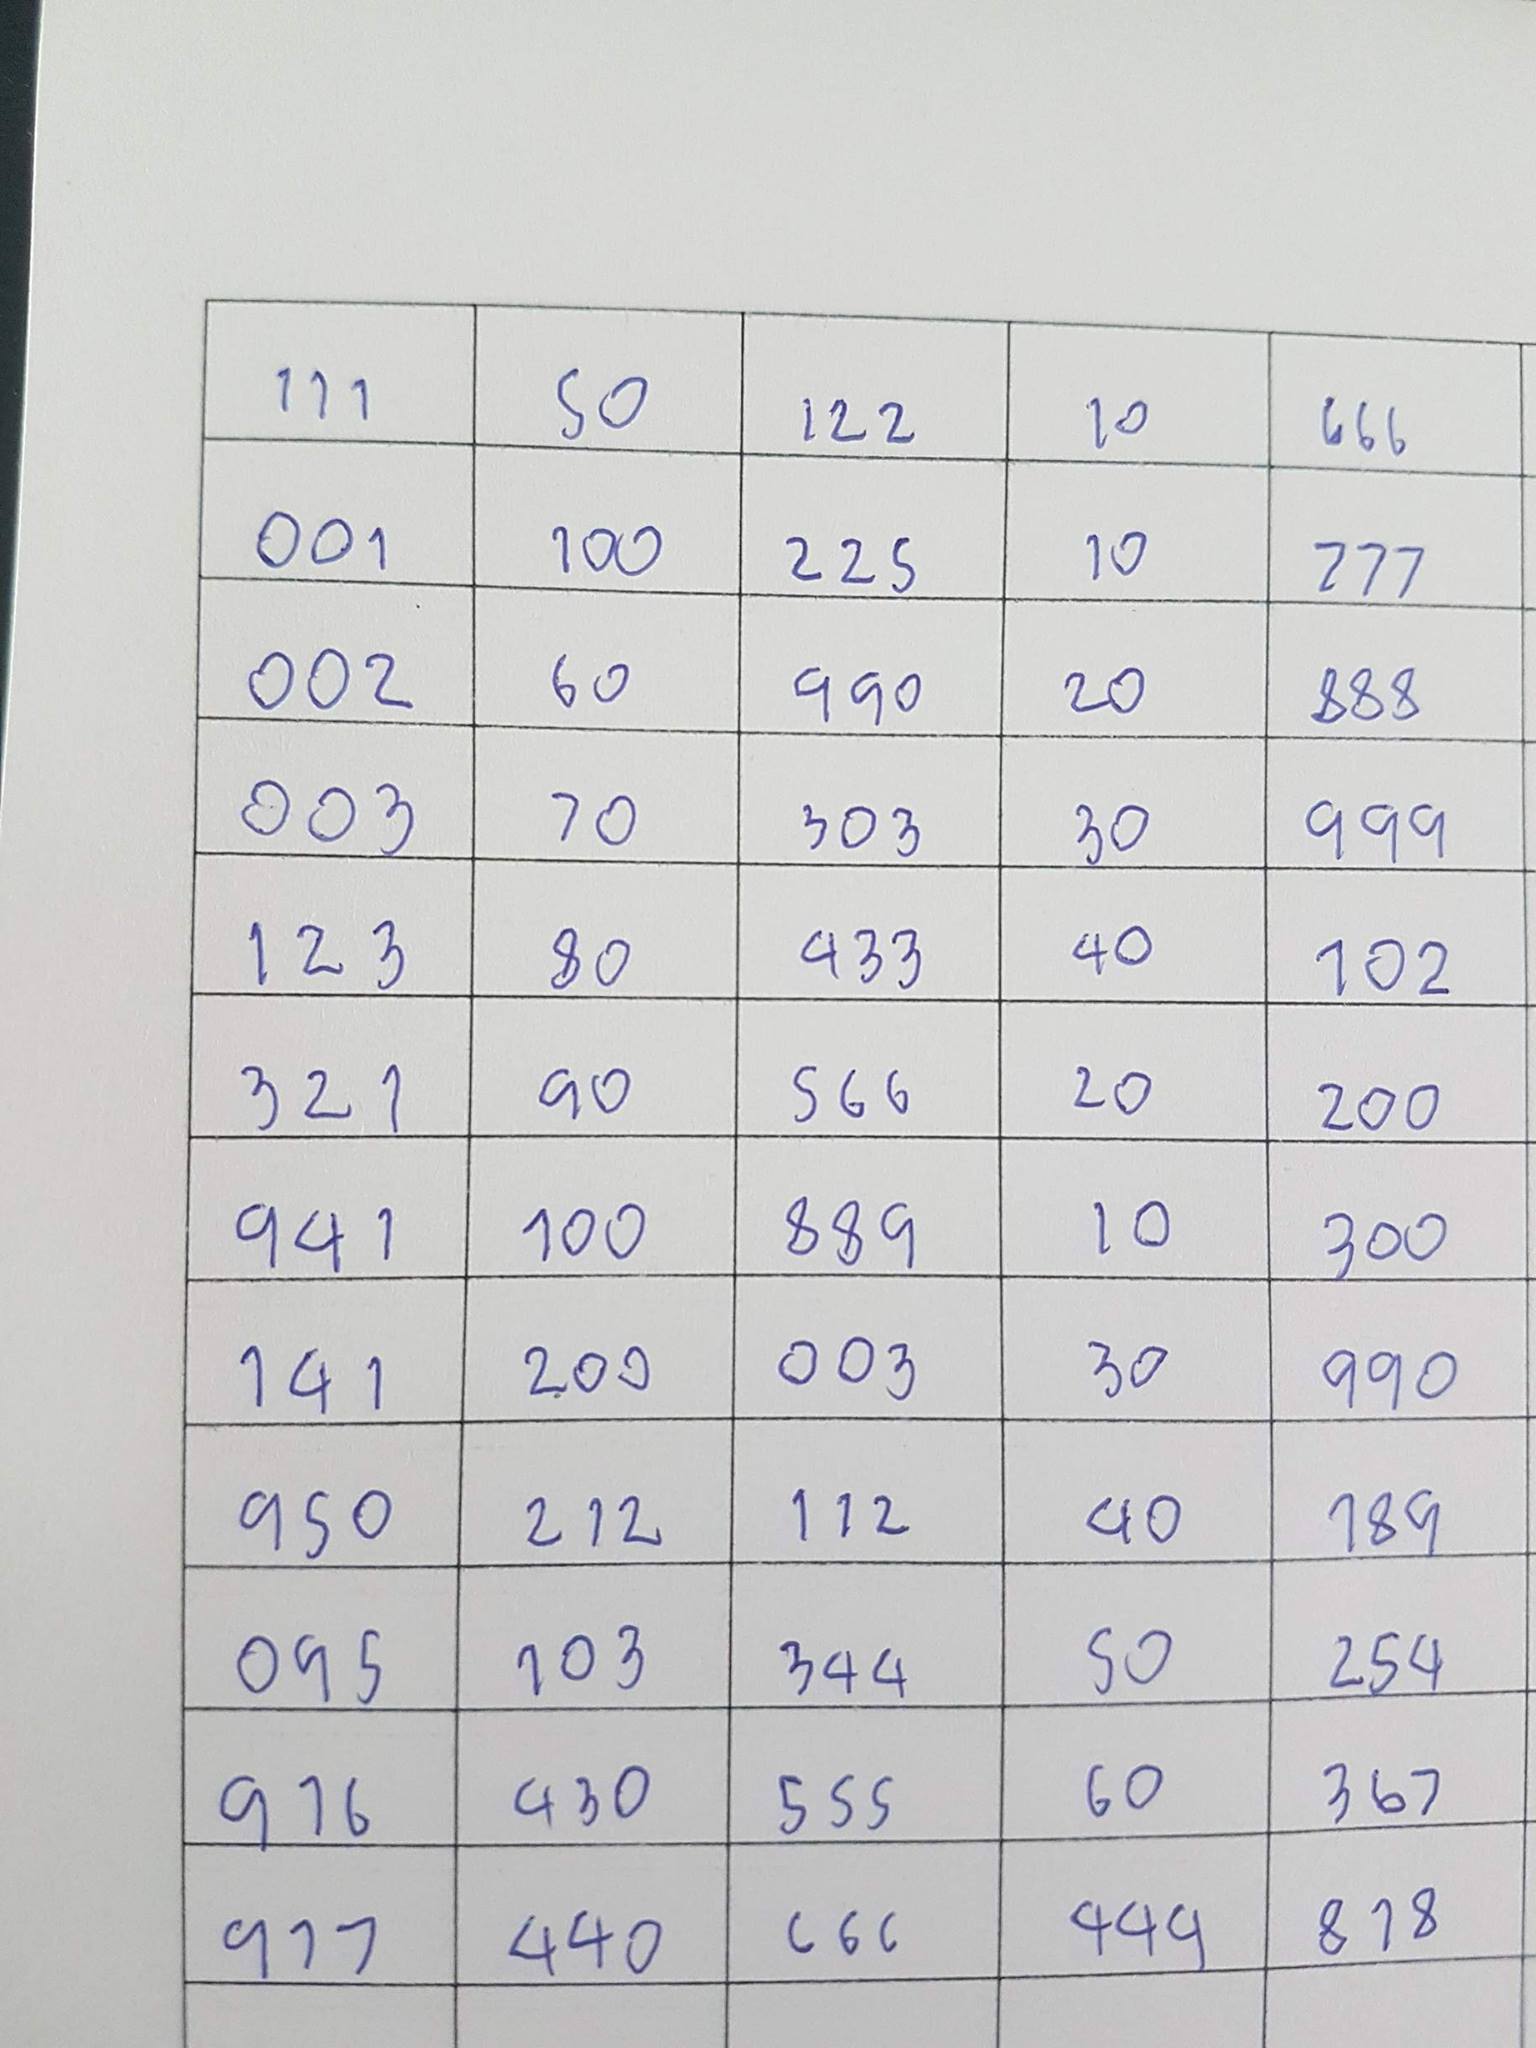 111 50 122 10 666
001 100 225 10 777
002 60 990 20 888
003 70 303 30 999
123 80 433 40 102
321 90 566 20 200
941 100 889 10 300
141 200 003 30 990
950 212 112 40 189
095 103 344 50 254
916 430 555 60 367
917 440 666 444 818